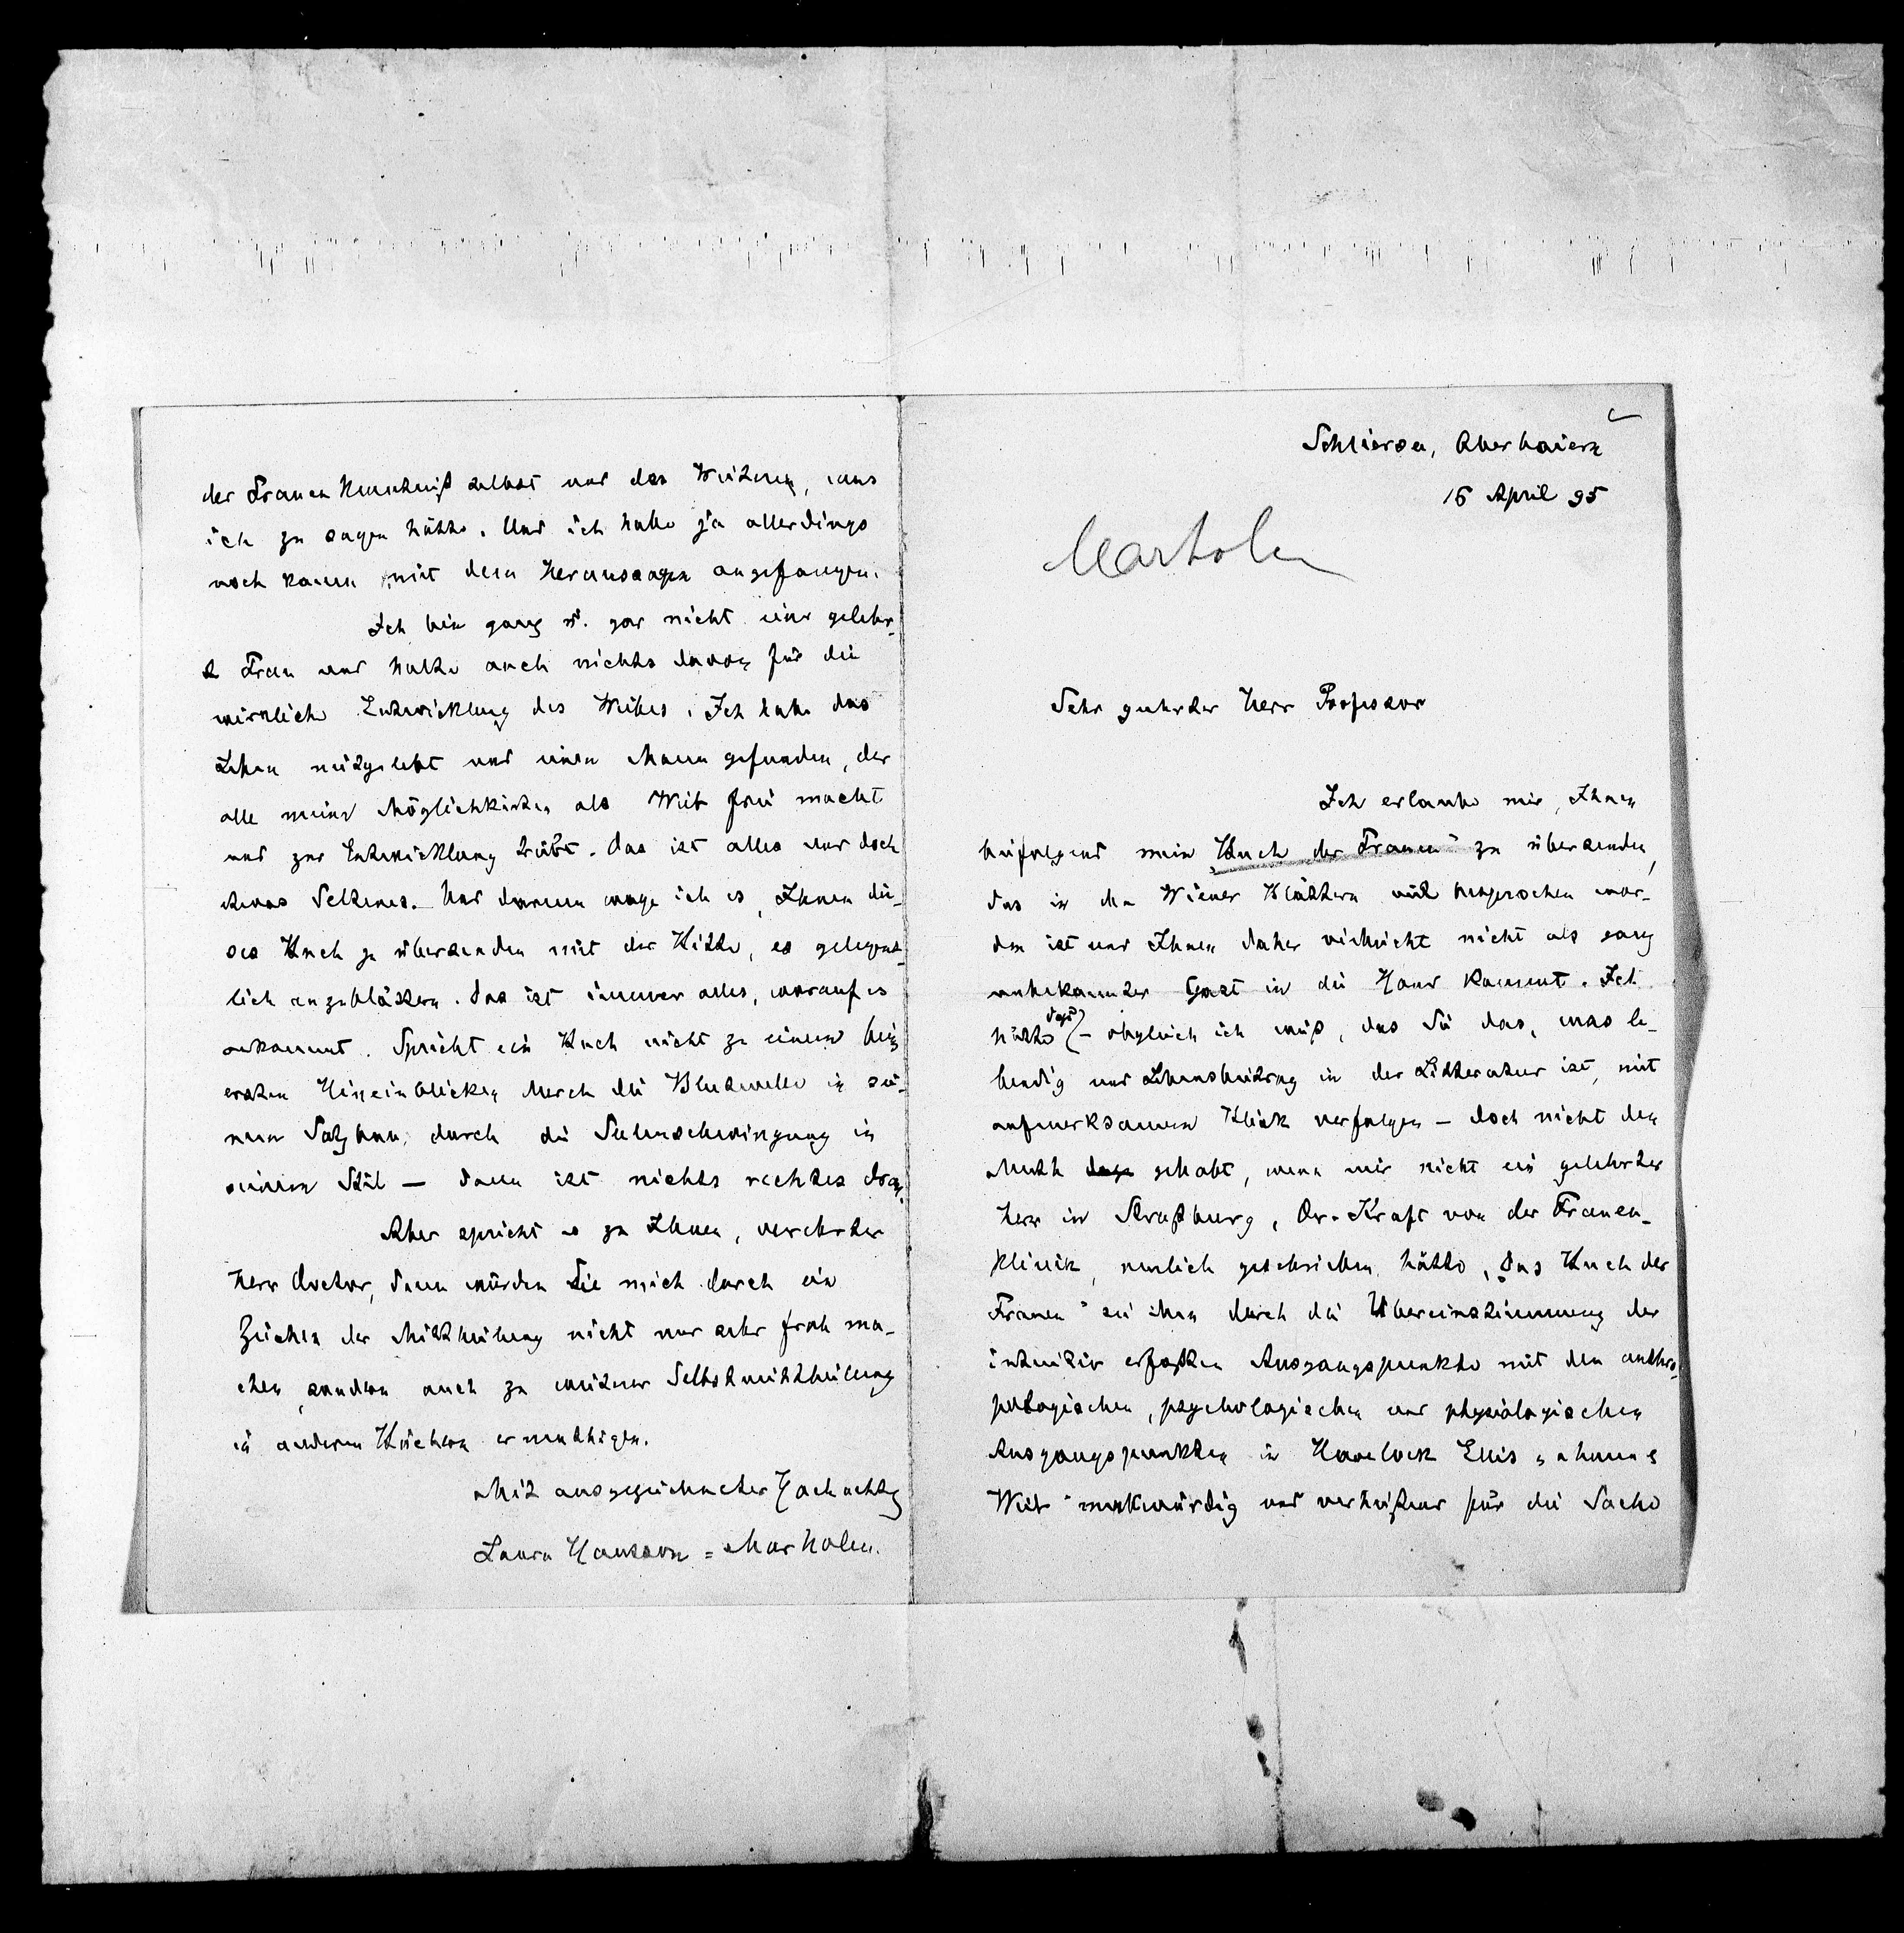 Schliersee, Oberbaiern
16 April 95
Marholm
Sehr geehrter Herr Professor
Ich erlaube mir, Ihnen
beifolgend mein „Buch der Frauen" zu übersenden,
das in den Wiener Blättern viel besprochen wor-
den ist und Ihnen daher vielleicht nicht als ganz
unbekannter Gast in die Hand kommt. Ich
hätte dazu – obgleich ich weiß, das Sie das, was le-
bendig und Lebensbeitrag in der Litteratur ist, mit
aufmerksamem Blick verfolgen – doch nicht den
Muth gehabt, wenn mir nicht ein gelehrter
Herr in Straßburg, Dr. Kraft von der Frauen-
klinik, neulich geschrieben hätte, „Das Buch der
Frauen" sei ihm durch die Übereinstimmung der
intuitiv erfaßten Ausgangspunkte mit den anthro-
pologischen, psychologischen und physiologischen
Ausgangspunkten in Havelock Ellis „Mann &
Weib" merkwürdig und verheißend für die Sache
der Frauenkenntniß selbst und das Weitere, was
ich zu sagen hätte. Und ich habe ja allerdings
noch kaum mit dem Heraussagen angefangen.
Ich bin ganz u. gar nicht eine gelehr-
te Frau und halte auch nichts davon für die
wirkliche Entwicklung des Weibes. Ich habe das
Leben mitgelebt und einen Mann gefunden, der
alle meine Möglichkeiten als Weib frei macht
und zur Entwicklung treibt. Das ist alles und doch
etwas Seltenes. Und darum wage ich es, Ihnen die-
ses Buch zu übersenden mit der Bitte, es gelegent-
lich anzublättern. Das ist immer alles, worauf es
ankommt. Spricht ein Buch nicht zu einem beim
ersten Hineinblicken durch die Blutwelle in sei-
nem Satzbau, durch die Seelenschwingung in
seinem Stil – dann ist nichts rechtes dran.
Aber spricht es zu Ihnen, verehrter
Herr Doctor, dann würden Sie mich durch ein
Zeichen der Mittheilung nicht nur sehr froh ma-
chen, sondern auch zu weiterer Selbstmittheilung
in anderen Büchern ermuthigen.
Mit ausgezeichneter Hochachtg
Laura Hansson = Marholm.